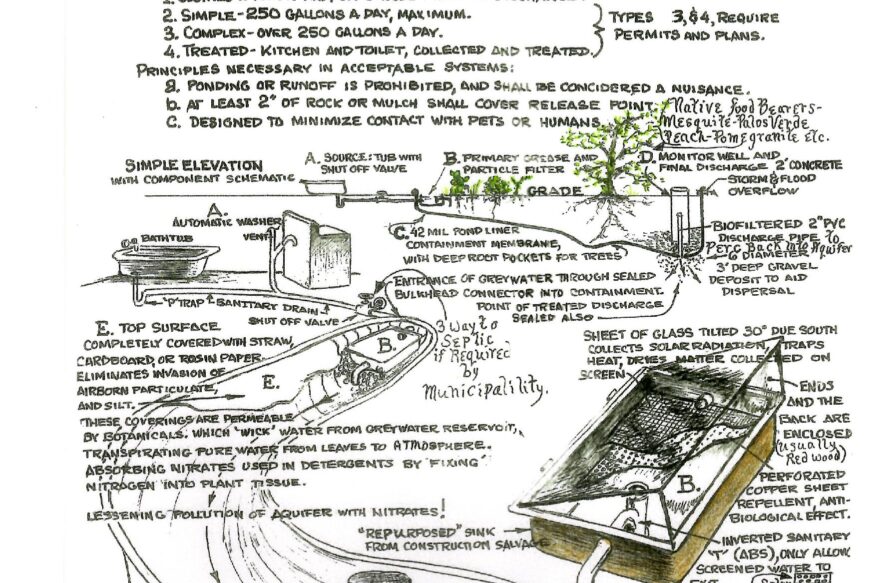 2. SIMPLE-250 GALLONS A DAY, MAXIMUM.
3. COMPLEX-OVER 250 GALLONS A DAY.
4. TREATED-KITCHEN AND TOILET, COLLECTED AND TREATED.
TYPES 3,&4, REQUIRE
PERMITS AND PLANS.
PRINCIPLES NECESSARY IN ACCEPTABLE SYSTEMS:
a. PONDING OR RUNOFF IS PROHIBITED, AND SHALL BE CONCIDERED A NUISANCE.
b. AT LEAST 2" OF ROCK OR MULCH SHALL COVER RELEASE POINT.
C. DESIGNED TO MINIMIZE CONTACT WITH PETS OR HUMANS
Native food Bearers-
Mesquite-Palos Verde
Peach-Pomegranite Etc.
SIMPLE ELEVATION
WITH COMPONENT SCHEMATIC
A. SOURCE: TUB WITH
SHUT OFF VALVE
B. PRIMARY GREASE AND
PARTICLE FILTER
GRADE
D. MONITOR WELL AND
FINAL DISCHARGE 2' CONCRETE
STORM & FLOOD
OVERFLOW
A.
AUTOMATIC WASHER
VENT
BATHTUB
C. 42 MIL POND LINER
CONTAINMENT MEMBRANE,
WITH DEEP ROOT POCKETS FOR TREES
BIOFILTERED 2" PVC
DISCHARGE PIPE to
Perc Back into Aquifer
6' DIAMETER
3' DEEP GRAVEL
DEPOSIT TO AID
DISPERSAL
"P" TRAP
SANITARY DRAIN
SHUT OFF VALVE
ENTRANCE OF GREYWATER THROUGH SEALED
BULKHEAD CONNECTOR INTO CONTAINMENT.
POINT OF TREATED DISCHARGE
SEALED ALSO
3 Way to
Septic
if Required
by
Municipalility.
E. TOP SURFACE
COMPLETELY COVERED WITH STRAW,
CARDBOARD, OR ROSIN PAPER
ELIMINATES INVASION OF
AIRBORN PARTICULATE,
AND SILT.
E.
B.
THESE COVERINGS ARE PERMEABLE
BY BOTANICALS. WHICH "WICK" WATER FROM GREYWATER RESERVOIR,
TRANSPIRATING PURE WATER FROM LEAVES TO ATMOSPHERE.
ABSORBING NITRATES USED IN DETERGENTS BY "FIXING"
NITROGEN INTO PLANT TISSUE.
LESSENING POLLUTION OF AQUIFER WITH NITRATES!
SHEET OF GLASS TILTED 30° DUE SOUTH
COLLECTS SOLAR RADIATION, TRAPS
HEAT, DRIES MATTER COLLECTED ON
SCREEN
ENDS
AND THE
BACK ARE
ENCLOSED
(usually
Redwood)
B.
PERFORATED
COPPER SHEET
REPELLENT, ANTI-
BIOLOGICAL EFFECT.
"REPURPOSED" SINK
FROM CONSTRUCTION SALVAGE
INVERTED SANITARY
"T" (ABS), ONLY ALLOW
SCREENED WATER TO